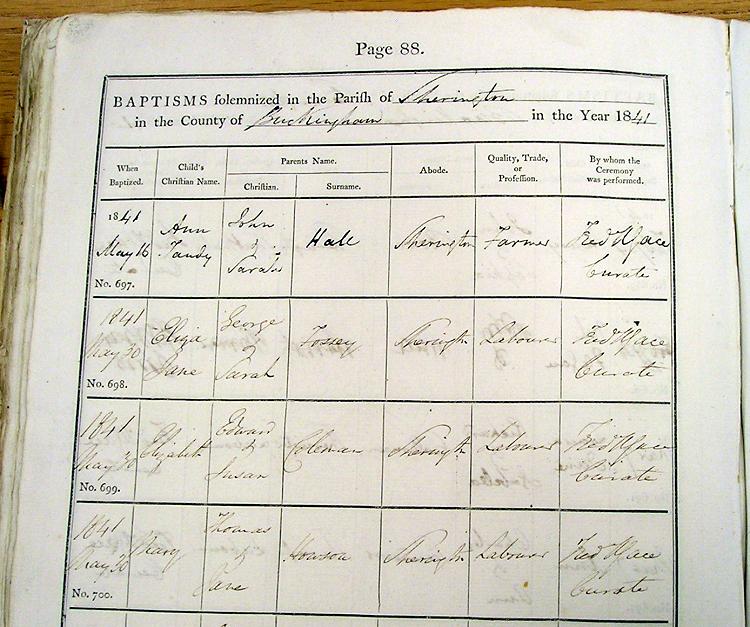 Page 88.
BAPTISMS solemnized in the Parish of Sherington
in the County of Buckingham in the Year 1841
When Baptized. Child's Christian Name. Parents Name. Christian. Surname. Abode. Quality, Trade, or Profession. By whom the Ceremony was performed.
1841 May 16 No. 697. Ann Tandy John & Sarah Hall Sherington Farmer Fred Wace Curate
1841 May 30 No. 698. Eliza Jane George & Sarah Fossey Sherington Labourer Fred Wace Curate
1841 May 30 No. 699. Elizabeth Edward & Susan Coleman Sherington Labourer Fred Wace Curate
1841 May 30 No. 700. Mary Thomas & Jane Howson Sherington Labourer Fred Wace Curate